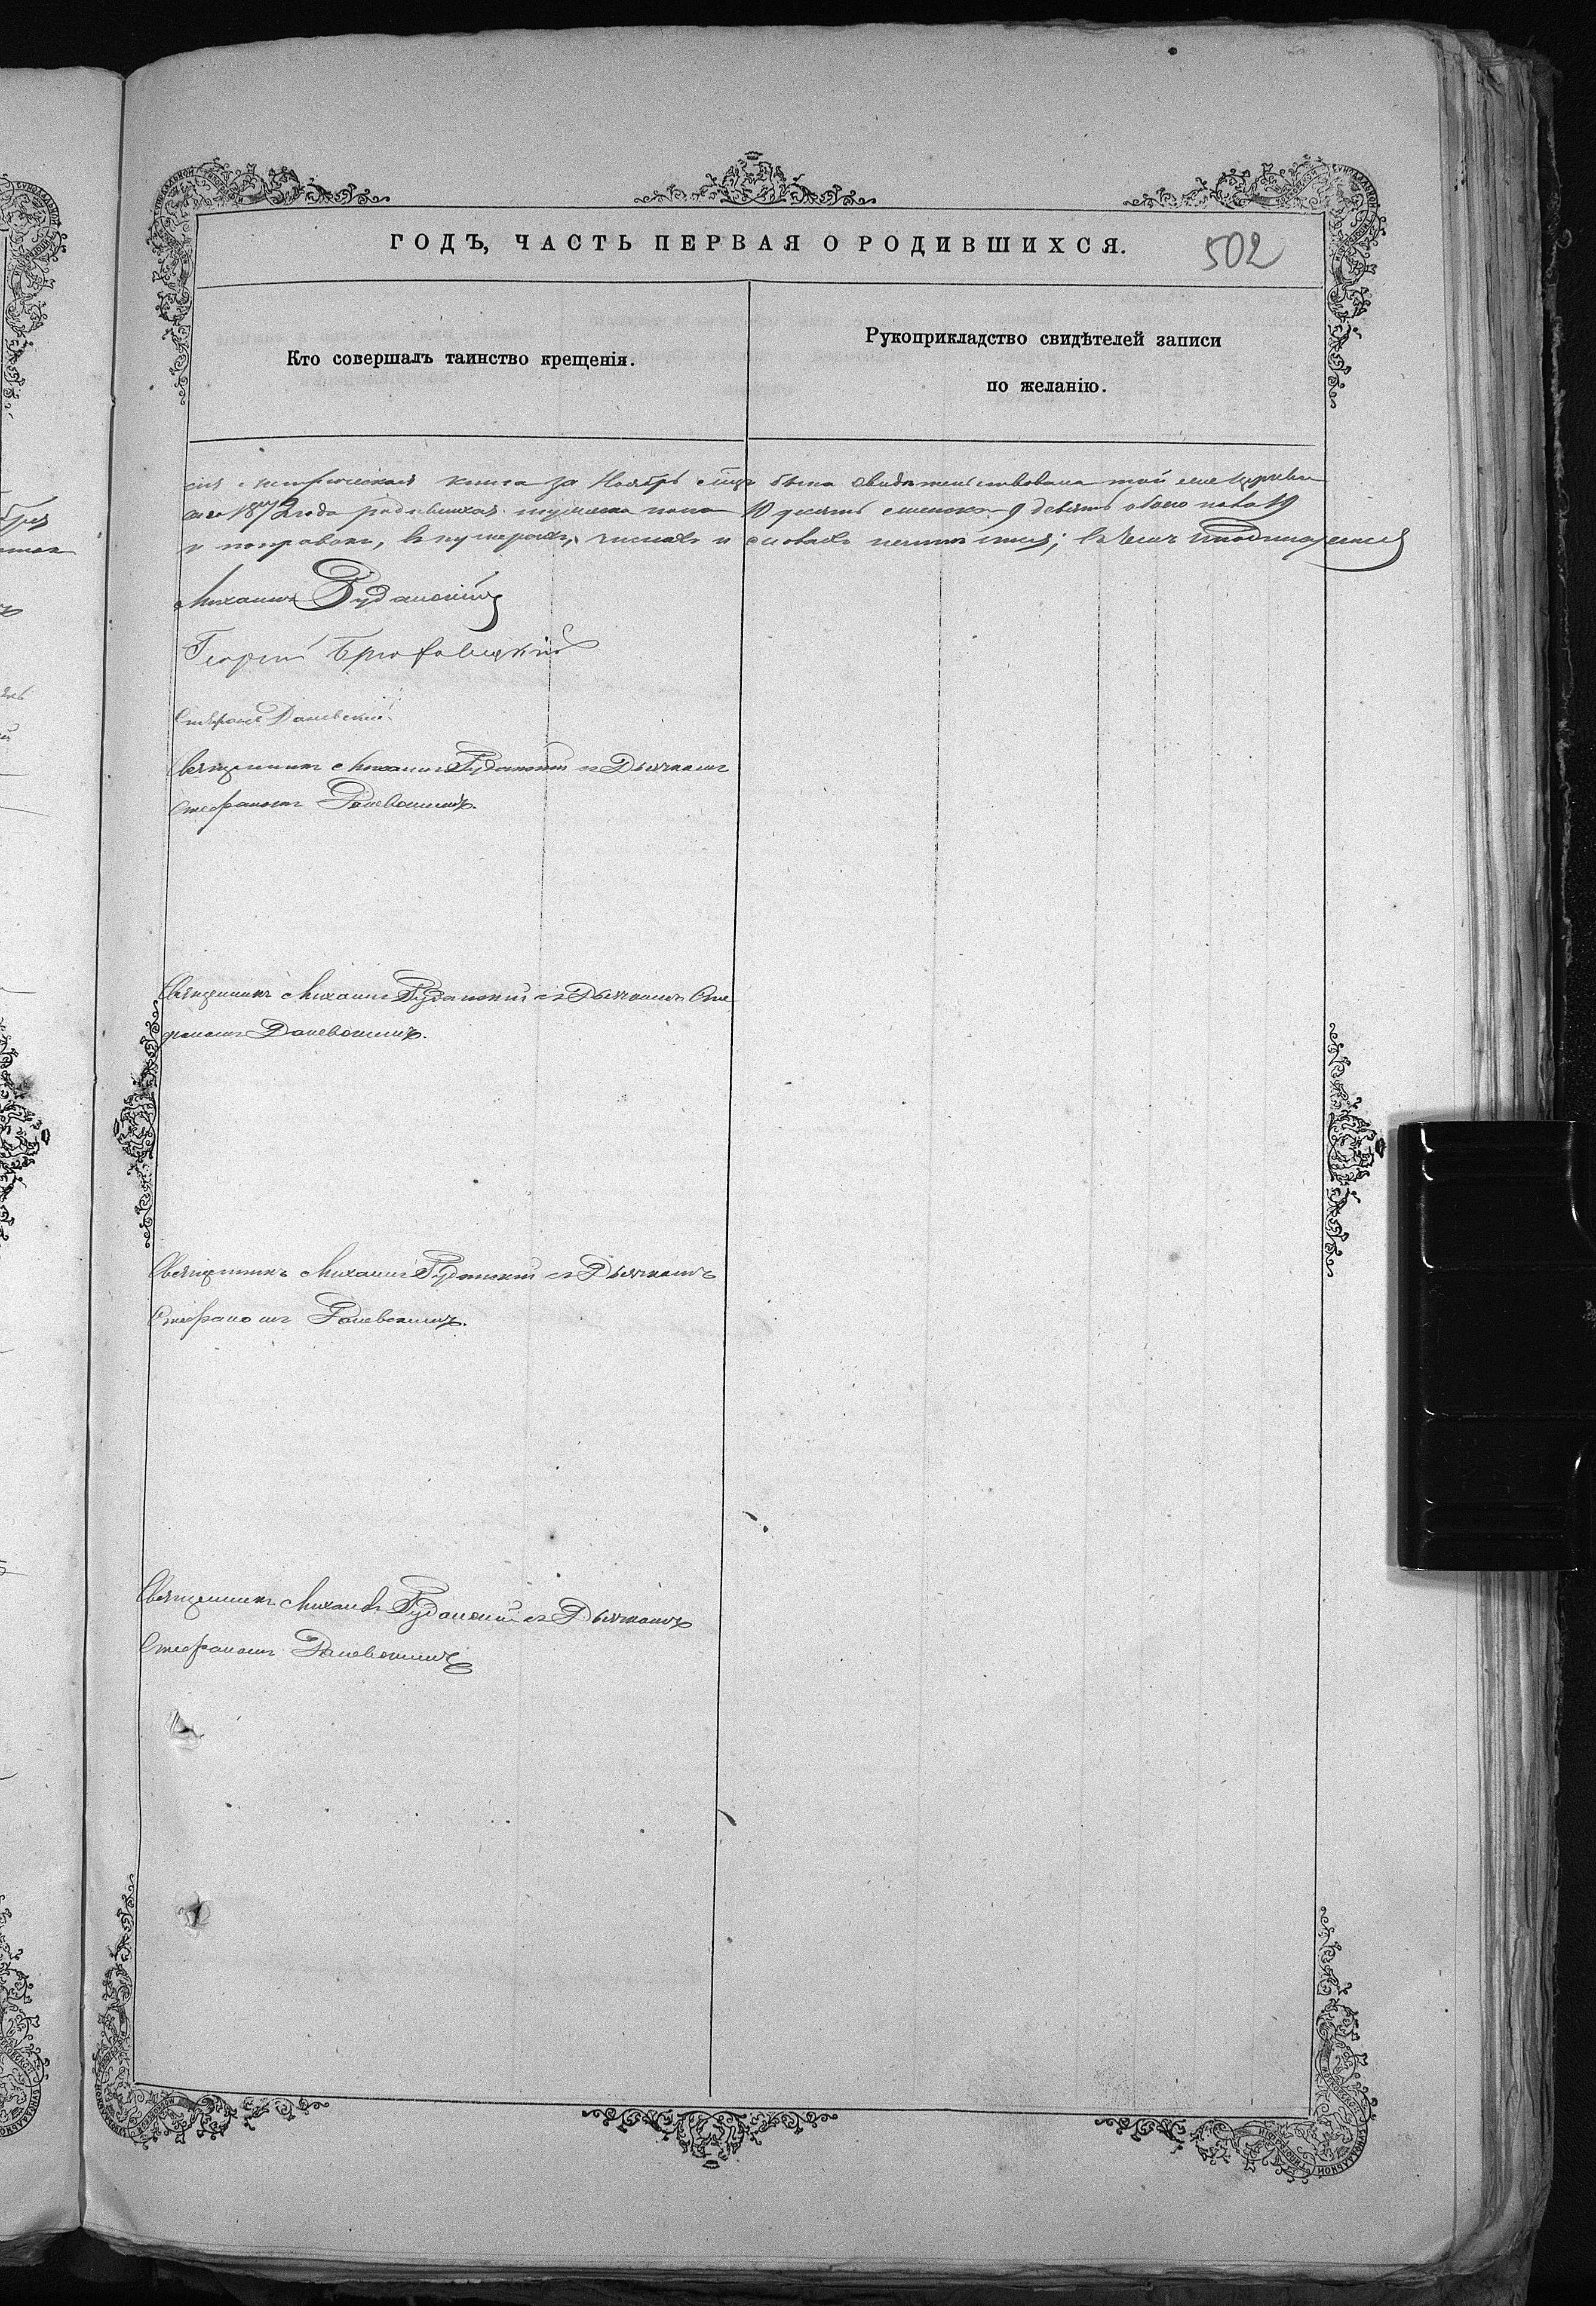 ГОДЪ, ЧАСТЬ ПЕРВАЯ О РОДИВШИХСЯ.
502
Кто совершалъ таинство крещенія.
Рукоприкладство свидѣтелей записи
по желанію.
сія метрическая книга за Ноябрь была свидѣтельствована той церкви
1872 года родившихся мужеска пола 10 десять женска 9 девять обоего пола 19
и поправокъ, въ нумерахъ, числахъ и словахъ въ чемъ
Михаилъ Руданскій
Георгій
Стефанъ Далевскій
Священникъ Михаилъ Руданскій съ Дьячкомъ
Стефаномъ Далевскимъ.
Священникъ Михаилъ Руданскій съ Дьячкомъ Сте
фаномъ Далевскимъ.
Священникъ Михаилъ Руданскій съ Дьячкомъ
Стефаномъ Далевскимъ.
Священникъ Михаилъ Руданскій съ Дьячкомъ
Стефаномъ Далевскимъ